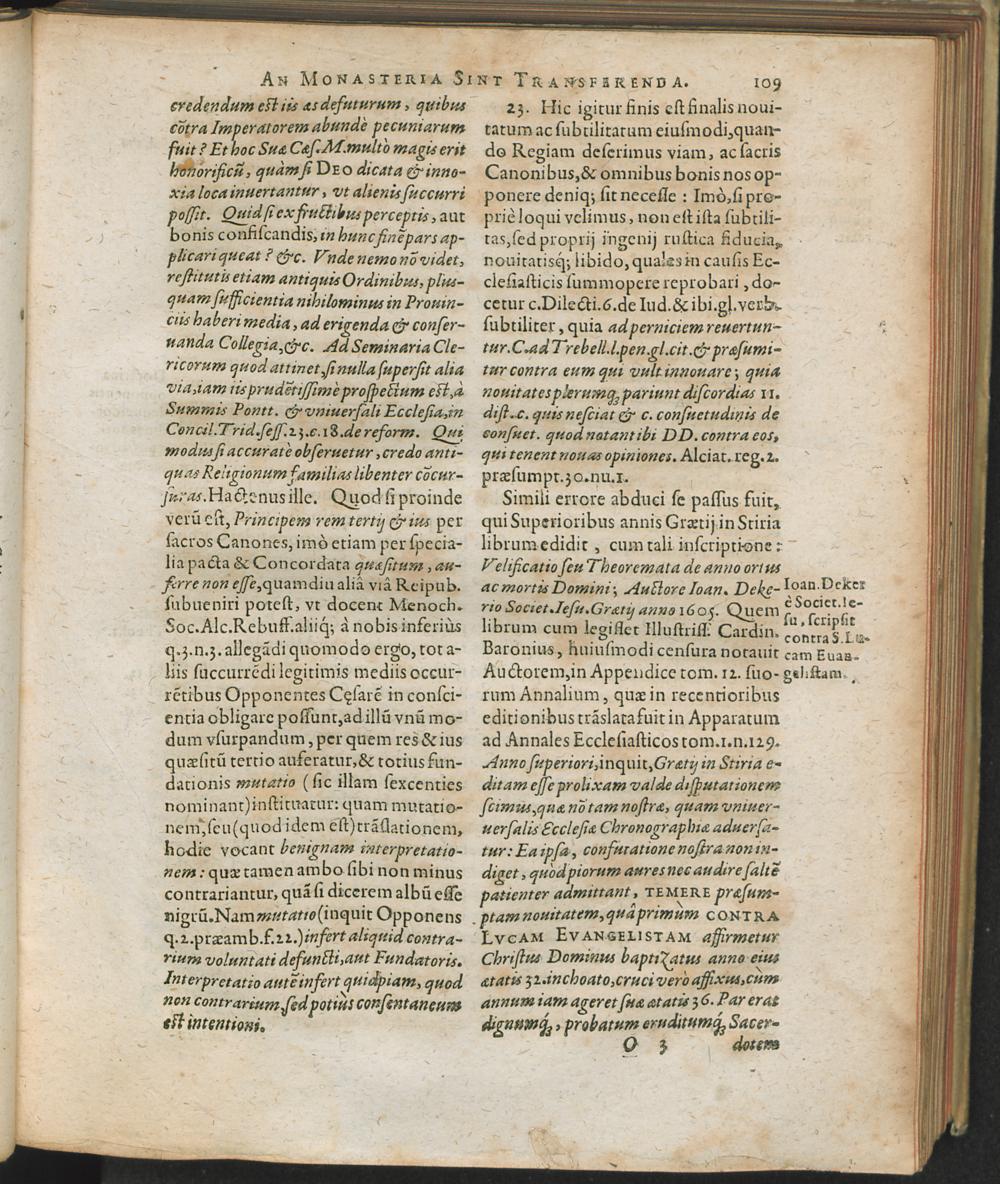 AN MONASTERIA SINT TRANSFERENDA. 109
credendum est iis æs defuturum, quibus
cōtra Imperatorem abundè pecuniarum
fuit? Et hoc Suæ Cæs. M. multò magis erit
honorificū, quàm si DEO dicata & inno-
xia loca inuertantur, vt alienis succurri
possit. Quid si ex fructibus perceptis, aut
bonis confiscandis, in hunc finē pars ap-
plicari queat? &c. Vnde nemo nō videt,
restitutis etiam antiquis Ordinibus, plus-
quam sufficientia nihilominus in Prouin-
ciis haberi media, ad erigenda & conser-
uanda Collegia, &c. Ad Seminaria Cle-
ricorum quod attinet, si nulla supersit alia
via, iam iis prudētissimè prospectum est, à
Summis Pontt. & vniuersali Ecclesia, in
Concil. Trid. sess. 23. c. 18. de reform. Qui
modus si accuratè obseruetur, credo anti-
quas Religionum familias libenter cōcur-
suras. Hactenus ille. Quod si proinde
verū est, Principem rem tertij & ius per
sacros Canones, imò etiam per specia-
lia pacta & Concordata quæsitum, au-
ferre non esse, quamdiu aliâ viâ Reipub.
subueniri potest, vt docent Menoch.
Soc. Alc. Rebuff. aliiq́; à nobis inferiùs
q. 3. n. 3. allegādi quomodo ergo, tot a-
liis succurrēdi legitimis mediis occur-
rētibus Opponentes Cęsarē in consci-
entia obligare possunt, ad illū vnū mo-
dum vsurpandum, per quem res & ius
quæsitū tertio auferatur, & totius fun-
dationis mutatio (sic illam sexcenties
nominant) instituatur: quam mutatio-
nem, seu (quod idem est) trāslationem,
hodie vocant benignam interpretatio-
nem: quæ tamen ambo sibi non minus
contrariantur, quā si dicerem albū esse
nigrū. Nam mutatio (inquit Opponens
q. 2. præamb. f. 22.) infert aliquid contra-
rium voluntati defuncti, aut Fundatoris.
Interpretatio autē infert quidpiam, quod
non contrarium, sed potiùs consentaneum
est intentioni.
23. Hic igitur finis est finalis noui-
tatum ac subtilitatum eiusmodi, quan-
do Regiam deserimus viam, ac sacris
Canonibus, & omnibus bonis nos op-
ponere deniq; sit necesse: Imò, si pro-
priè loqui velimus, non est ista subtili-
tas, sed proprij ingenij rustica fiducia,
nouitatisq́; libido, quales in causis Ec-
clesiasticis summopere reprobari, do-
cetur c. Dilecti. 6. de Iud. & ibi. gl. verb.
subtiliter, quia ad perniciem reuertun-
tur. C. ad Trebell. l. pen. gl. cit. & præsumi-
tur contra eum qui vult innouare; quia
nouitates plerumq; pariunt discordias 11.
dist. c. quis nesciat & c. consuetudinis de
consuet. quod notant ibi DD. contra eos,
qui tenent nouas opiniones. Alciat. reg. 2.
præsumpt. 30. nu. 1.
Simili errore abduci se passus fuit,
qui Superioribus annis Grætij in Stiria
librum edidit, cum tali inscriptione:
Velificatio seu Theoremata de anno ortus
ac mortis Domini; Auctore Ioan. Deke-
rio Societ. Iesu. Grætij anno 1605. Quem
librum cum legisset Illustriss. Cardin.
Baronius, huiusmodi censura notauit
Auctorem, in Appendice tom. 12. suo-
rum Annalium, quæ in recentioribus
editionibus trāslata fuit in Apparatum
ad Annales Ecclesiasticos tom. 1. n. 129.
Anno superiori, inquit, Grætij in Stiria e-
ditam esse prolixam valde disputationem
scimus, quæ nō tam nostræ, quam vniuer-
uersalis Ecclesiæ Chronographiæ aduersa-
tur: Ea ipsa, confutatione nostra non in-
diget, quòd piorum aures nec audire saltē
patienter admittant, TEMERE præsum-
ptam nouitatem, quâ primùm CONTRA
LVCAM EVANGELISTAM affirmetur
Christus Dominus baptizatus anno eius
ætatis 32. inchoato, cruci verò affixus, cùm
annum iam ageret suæ ætatis 36. Par erat
dignumq́;, probatum eruditumq́; Sacer-
Ioan. Deker
è Societ. Ie-
su, scripsit
contra S. Lu-
cam Euan-
gelistam.
O 3 dotem